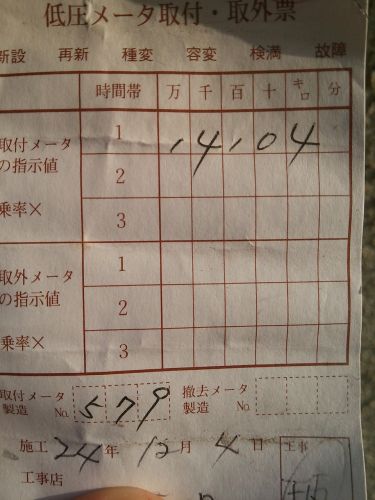 低圧メータ取付・取外票
新設 再新 種変 容変 検満 故障
時間帯 万 千 百 十 キロ 分
取付メータ
の指示値
乗率×
1 14104
2
3
取外メータ
の指示値
乗率×
1
2
3
取付メータ
製造 No. 579
撤去メータ
製造 No.
施工 24年 12月 4日 工事
工事店